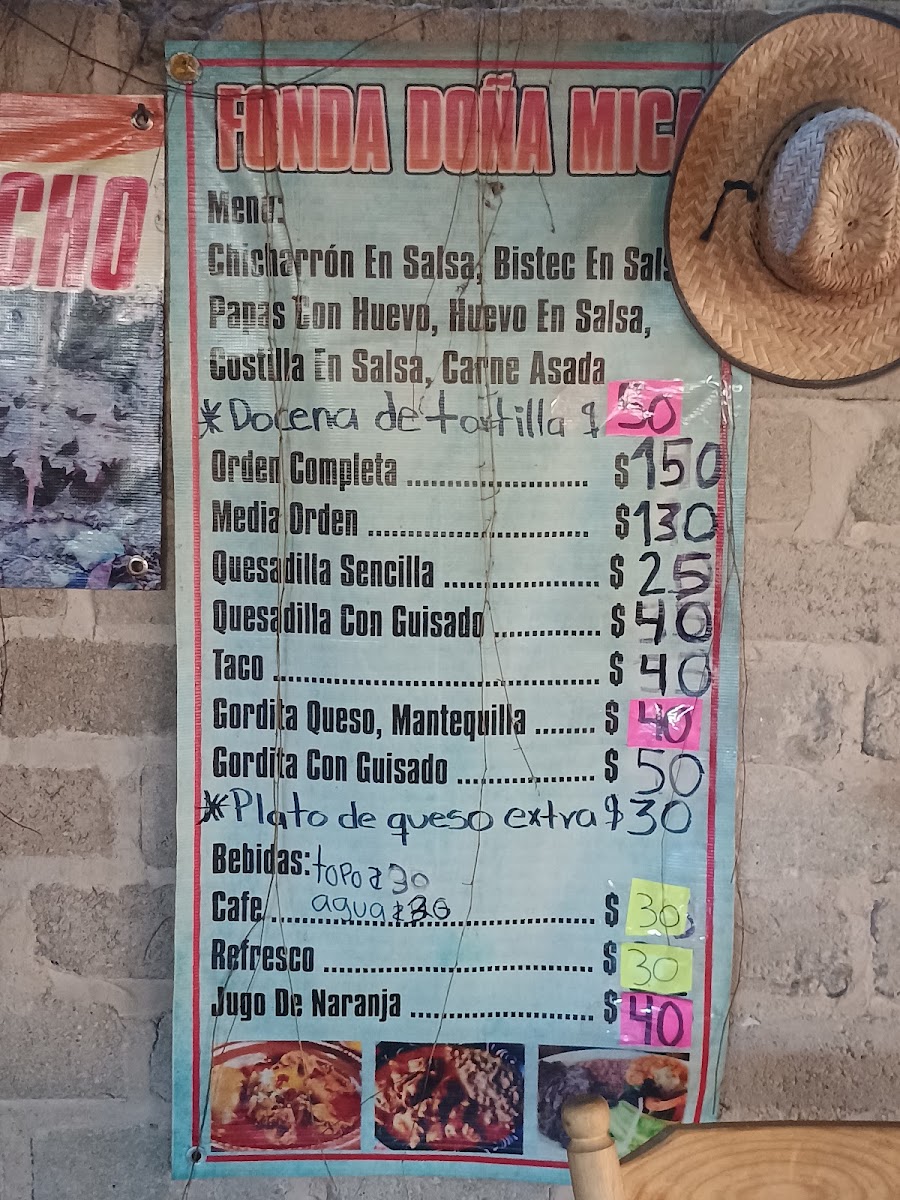 CHO
FONDA DOÑA MICA
Menú:
Chicharrón En Salsa, Bistec En Sals
Papas Con Huevo, Huevo En Salsa,
Costilla En Salsa, Carne Asada
*Docena de tortilla $ 50
Orden Completa .......................... $150
Media Orden ............................... $130
Quesadilla Sencilla ...................... $ 25
Quesadilla Con Guisado ............... $ 40
Taco ............................................. $ 40
Gordita Queso, Mantequilla ........ $ 40
Gordita Con Guisado .................... $ 50
*Plato de queso extra $30
Bebidas: topo $ 30
agua $ 30
Cafe ............................................. $ 30
Refresco ...................................... $ 30
Jugo De Naranja .......................... $ 40